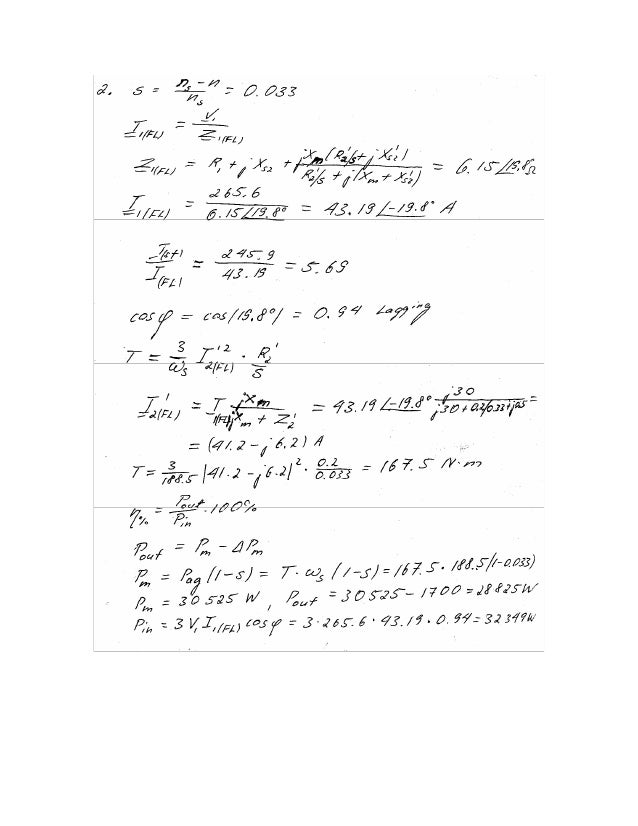 2. s = (n_s - n)/n_s = 0.033
I_1(FL) = V_1/Z_1(FL)
Z_1(FL) = R_1 + jX_s2 + jX_m(R_2'/s + jX_s2')/(R_2'/s + j(X_m + X_s2')) = 6.15∠19.8Ω
I_1(FL) = 265.6/(6.15∠19.8°) = 43.19∠-19.8° A
I(st)/I(FL) = 245.9/43.19 = 5.69
cosφ = cos(19.8°) = 0.94 Lagging
T = 3/ω_s I_2(FL)'^2 · R_2'/s
I_2(FL)' = I_1(FL) jX_m/(jX_m + Z_2') = 43.19∠-19.8° j30/(j30+0.2/0.33+j0.5) =
= (41.2 - j6.2) A
T = 3/188.5 |41.2 - j6.2|^2 · 0.2/0.033 = 167.5 N·m
η% = Pout/Pin · 100%
Pout = Pm - ΔPm
Pm = Pag(1-s) = T·ω_s(1-s) = 167.5 · 188.5(1-0.033)
Pm = 30 525 W, Pout = 30525 - 1700 = 28825W
Pin = 3V_1 I_1(FL) cosφ = 3·265.6·43.19·0.94 = 32349W